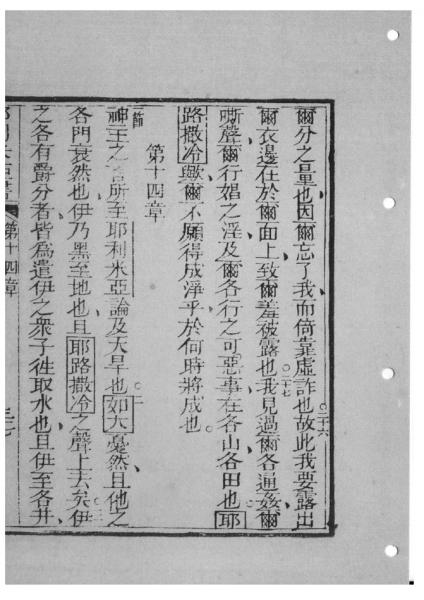 爾分之量也因爾忘了我而倚靠虛詐也二十六故此我要露出
爾衣邊在於爾面上致爾羞被露也二十七我見過爾各通姦爾
嘶聲爾行娼之淫及爾各行之可惡事在各山各田也耶
路撒冷歟爾不願得成淨乎於何時將成也
第十四章
一節神主之言所至耶利米亞論及大旱也二如大毫然且他之
各門衰然也伊乃黑至地也且耶路撒冷之聲上去矣三伊
之各有爵分者皆爲遣伊之衆子徃取水也且伊至各井
第十四章